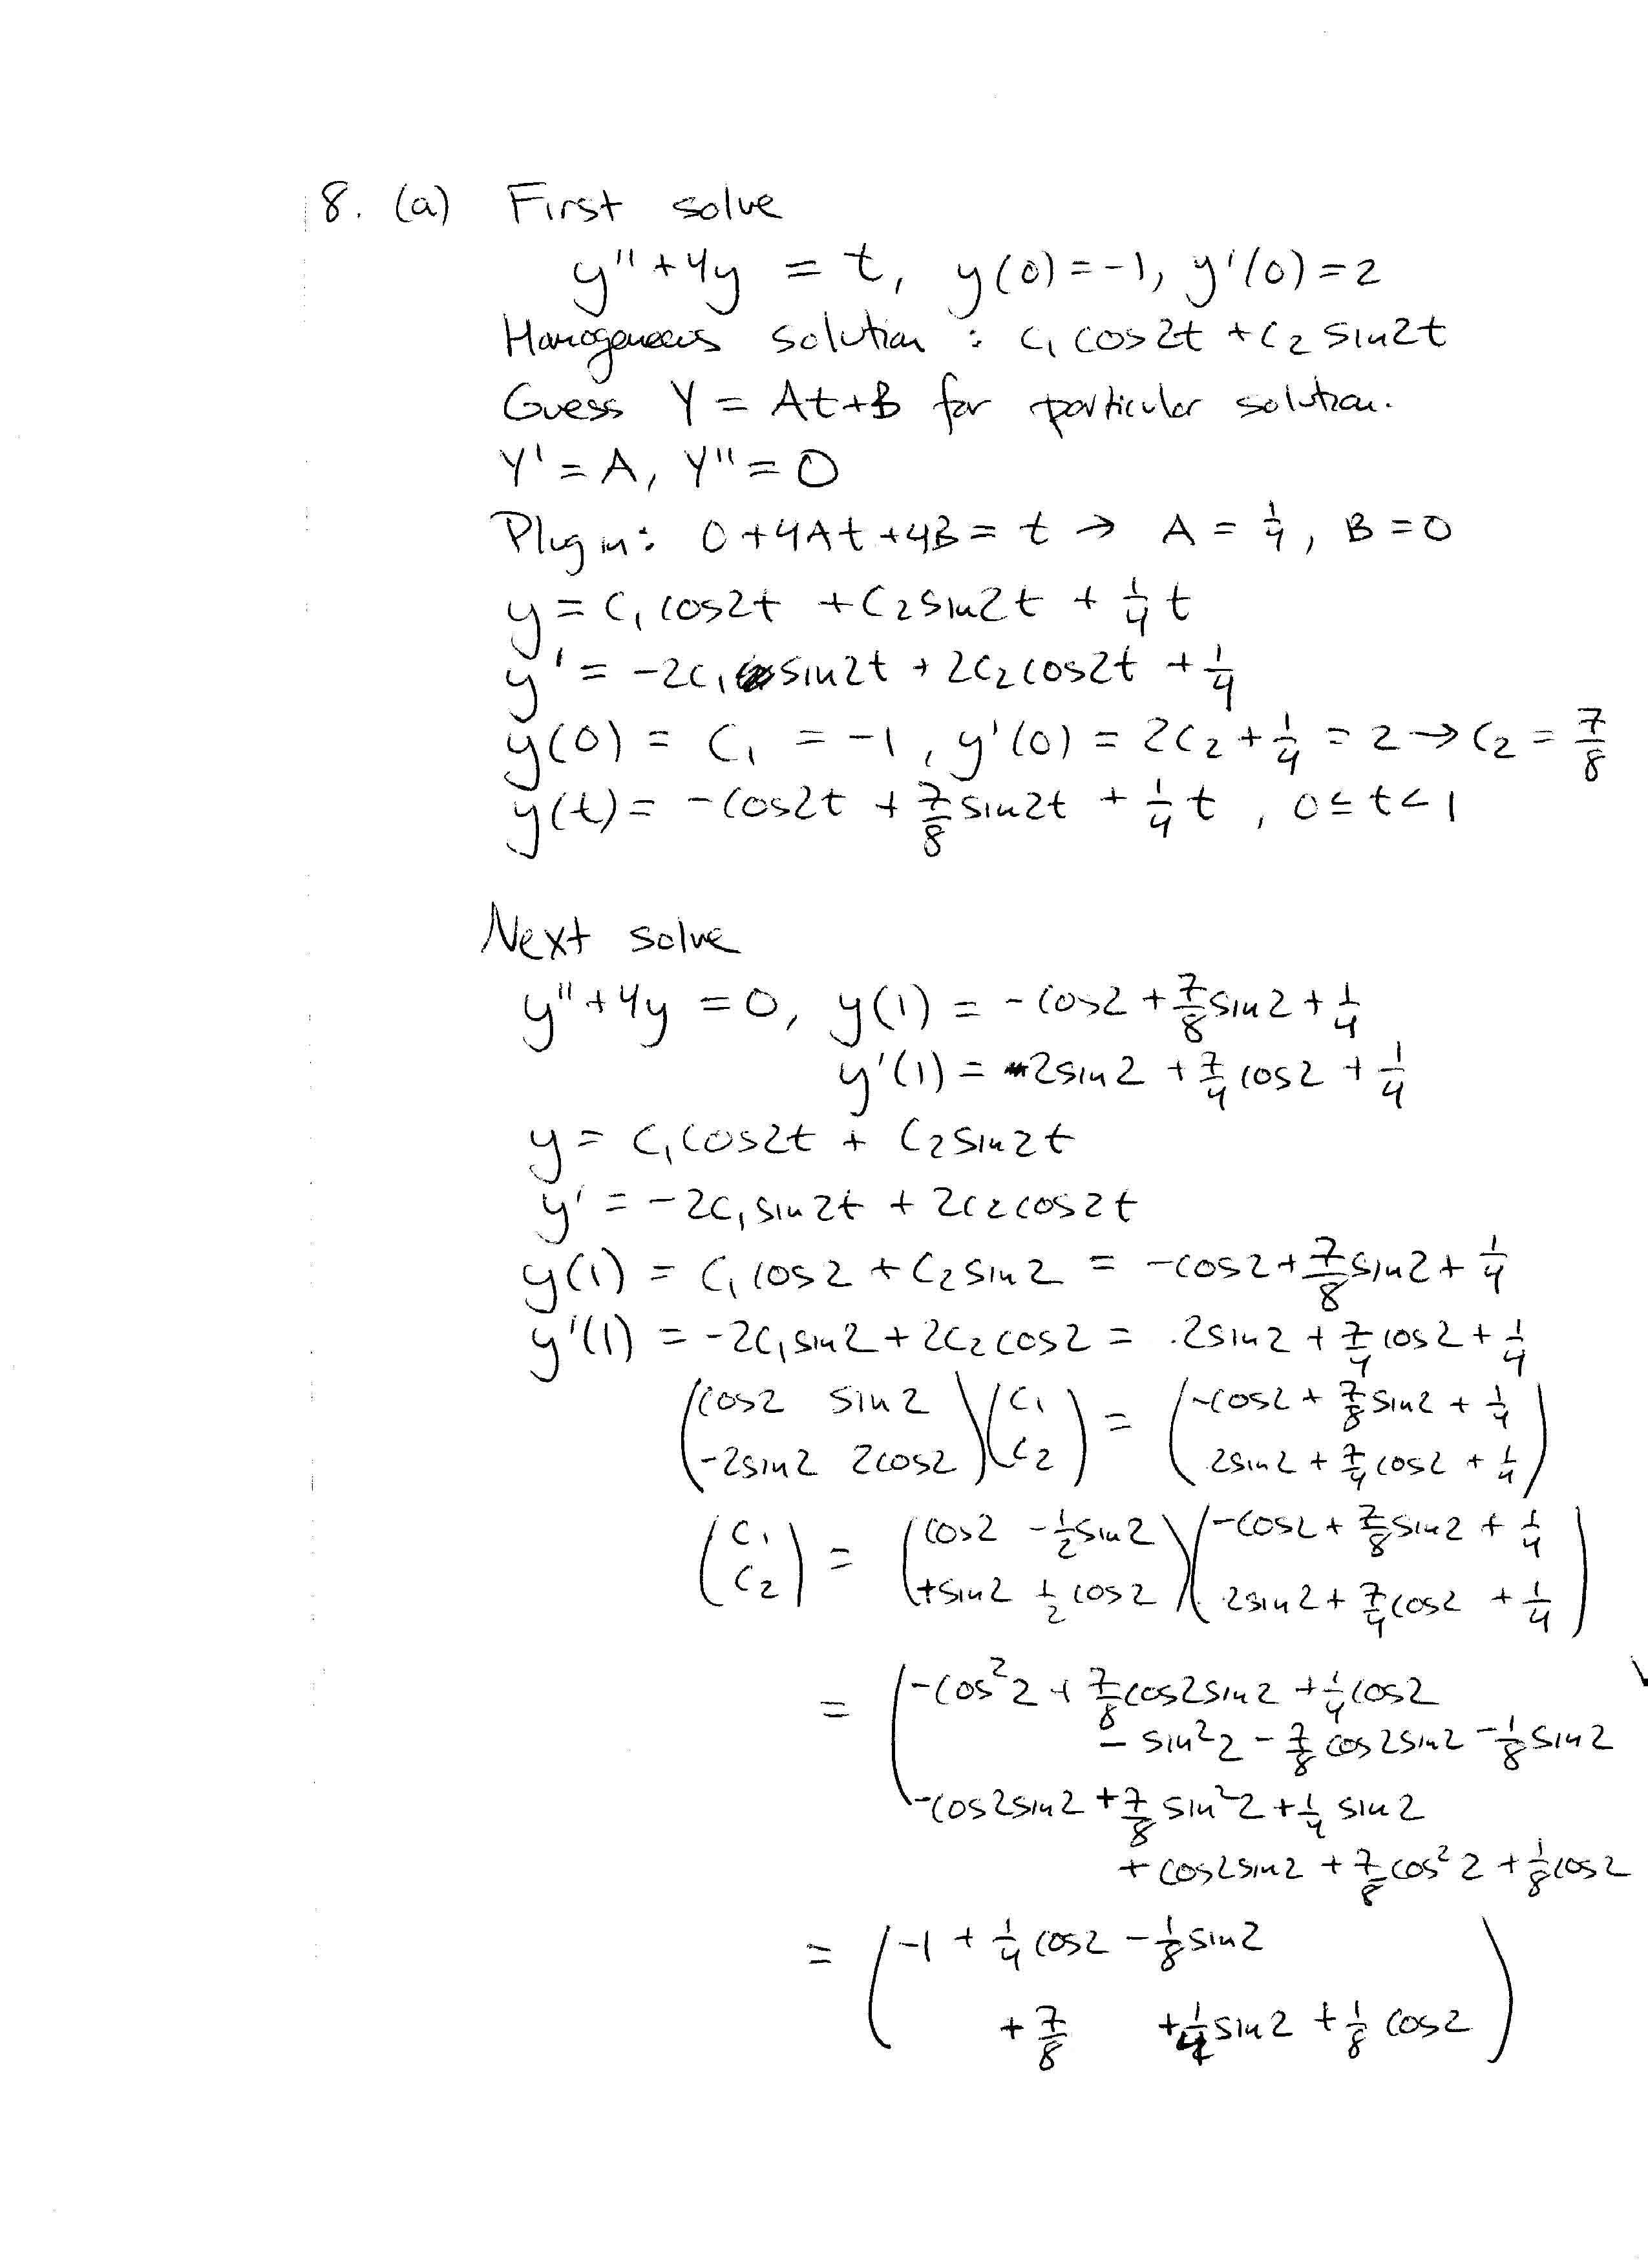 8. (a) First solve
y'' + 4y = t, y(0) = -1, y'(0) = 2
Homogeneous solution : c₁ cos2t + c₂ sin2t
Guess Y = At+B for particular solution.
Y' = A, Y'' = 0
Plug in: 0 + 4At + 4B = t → A = 1/4, B = 0
y = c₁ cos2t + c₂ sin2t + 1/4 t
y' = -2c₁ sin2t + 2c₂ cos2t + 1/4
y(0) = c₁ = -1, y'(0) = 2c₂ + 1/4 = 2 → c₂ = 7/8
y(t) = -cos2t + 7/8 sin2t + 1/4 t, 0 ≤ t < 1
Next solve
y'' + 4y = 0, y(1) = -cos2 + 7/8 sin2 + 1/4
y'(1) = 2sin2 + 7/4 cos2 + 1/4
y = c₁ cos2t + c₂ sin2t
y' = -2c₁ sin2t + 2c₂ cos2t
y(1) = c₁ cos2 + c₂ sin2 = -cos2 + 7/8 sin2 + 1/4
y'(1) = -2c₁ sin2 + 2c₂ cos2 = 2sin2 + 7/4 cos2 + 1/4
(cos2 sin2) (c₁) = (-cos2 + 7/8 sin2 + 1/4)
(-2sin2 2cos2) (c₂) (2sin2 + 7/4 cos2 + 1/4)
(c₁) = (cos2 -1/2 sin2) (-cos2 + 7/8 sin2 + 1/4)
(c₂) (+sin2 1/2 cos2) (2sin2 + 7/4 cos2 + 1/4)
= (-cos²2 + 7/8 cos2sin2 + 1/4 cos2
- sin²2 - 7/8 cos2sin2 - 1/8 sin2
-cos2sin2 + 7/8 sin²2 + 1/4 sin2
+ cos2sin2 + 7/8 cos²2 + 1/8 cos2
= (-1 + 1/4 cos2 - 1/8 sin2
+ 7/8 + 1/4 sin2 + 1/8 cos2)